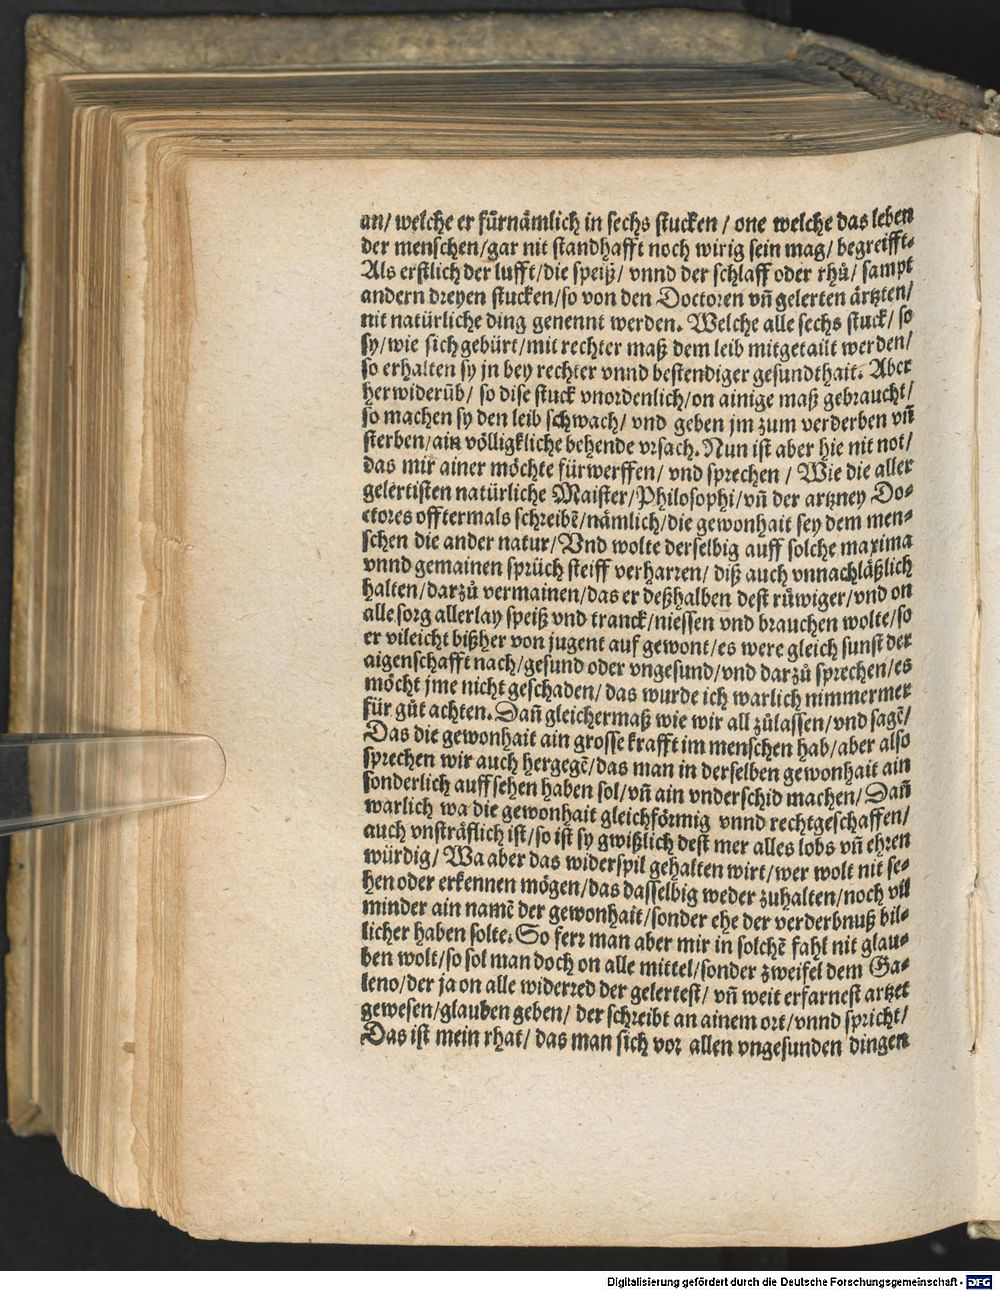 an/ welche er fürnämlich in sechs stucken / one welche das leben
der menschen/gar nit standhafft noch wirig sein mag/ begreifft.
Als erstlich der lufft/die speiß/ vnnd der schlaff oder rhů/ sampt
andern dreyen stucken/so von den Doctoren vñ gelerten ärtzten/
nit natürliche ding genennt werden. Welche alle sechs stuck/ so
sy/wie sich gebürt/mit rechter maß dem leib mitgetailt werden/
so erhalten sy jn bey rechter vnnd bestendiger gesundthait. Aber
herwiderūb/ so dise stuck vnordenlich/on ainige maß gebraucht/
so machen sy den leib schwach/ vnd geben jm zum verderben vñ
sterben/ain völligkliche behende vrsach. Nun ist aber hie nit not/
das mir ainer möchte fürwerffen/ vnd sprechen / Wie die aller
gelertisten natürliche Maister/Philosophi/vñ der artzney Do-
ctores offtermals schreibē/nämlich/die gewonhait sey dem men-
schen die ander natur/Vnd wolte derselbig auff solche maxima
vnnd gemainen sprüch steiff verharren/ diß auch vnnachläßlich
halten/darzů vermainen/das er deßhalben dest rüwiger/vnd on
alle sorg allerlay speiß vnd tranck/niessen vnd brauchen wolte/so
er vileicht bißher von jugent auf gewont/es were gleich sunst der
aigenschafft nach/gesund oder vngesund/vnd darzů sprechen/es
möcht jme nicht geschaden/das wurde ich warlich nimmermer
für gůt achten. Dañ gleichermaß wie wir all zůlassen/vnd sagē/
Das die gewonhait ain grosse krafft im menschen hab/aber also
sprechen wir auch hergegē/das man in derselben gewonhait ain
sonderlich auffsehen haben sol/vñ ain vnderschid machen/ Dañ
warlich wa die gewonhait gleichförmig vnnd rechtgeschaffen/
auch vnsträflich ist/so ist sy gwißlich dest mer alles lobs vñ ehren
würdig/ Wa aber das widerspil gehalten wirt/wer wolt nit se-
hen oder erkennen mögen/das dasselbig weder zuhalten/noch vil
minder ain namē der gewonhait/sonder ehe der verderbnuß bil-
licher haben solte. So ferr man aber mir in solchē fahl nit glau-
ben wolt/so sol man doch on alle mittel/sonder zweifel dem Ga-
leno/der ja on alle widerred der gelertest/ vñ weit erfarnest artzet
gewesen/glauben geben/ der schreibt an ainem ort/vnnd spricht/
Das ist mein rhat/ das man sich vor allen vngesunden dingen
Digitalisierung gefördert durch die Deutsche Forschungsgemeinschaft - DFG